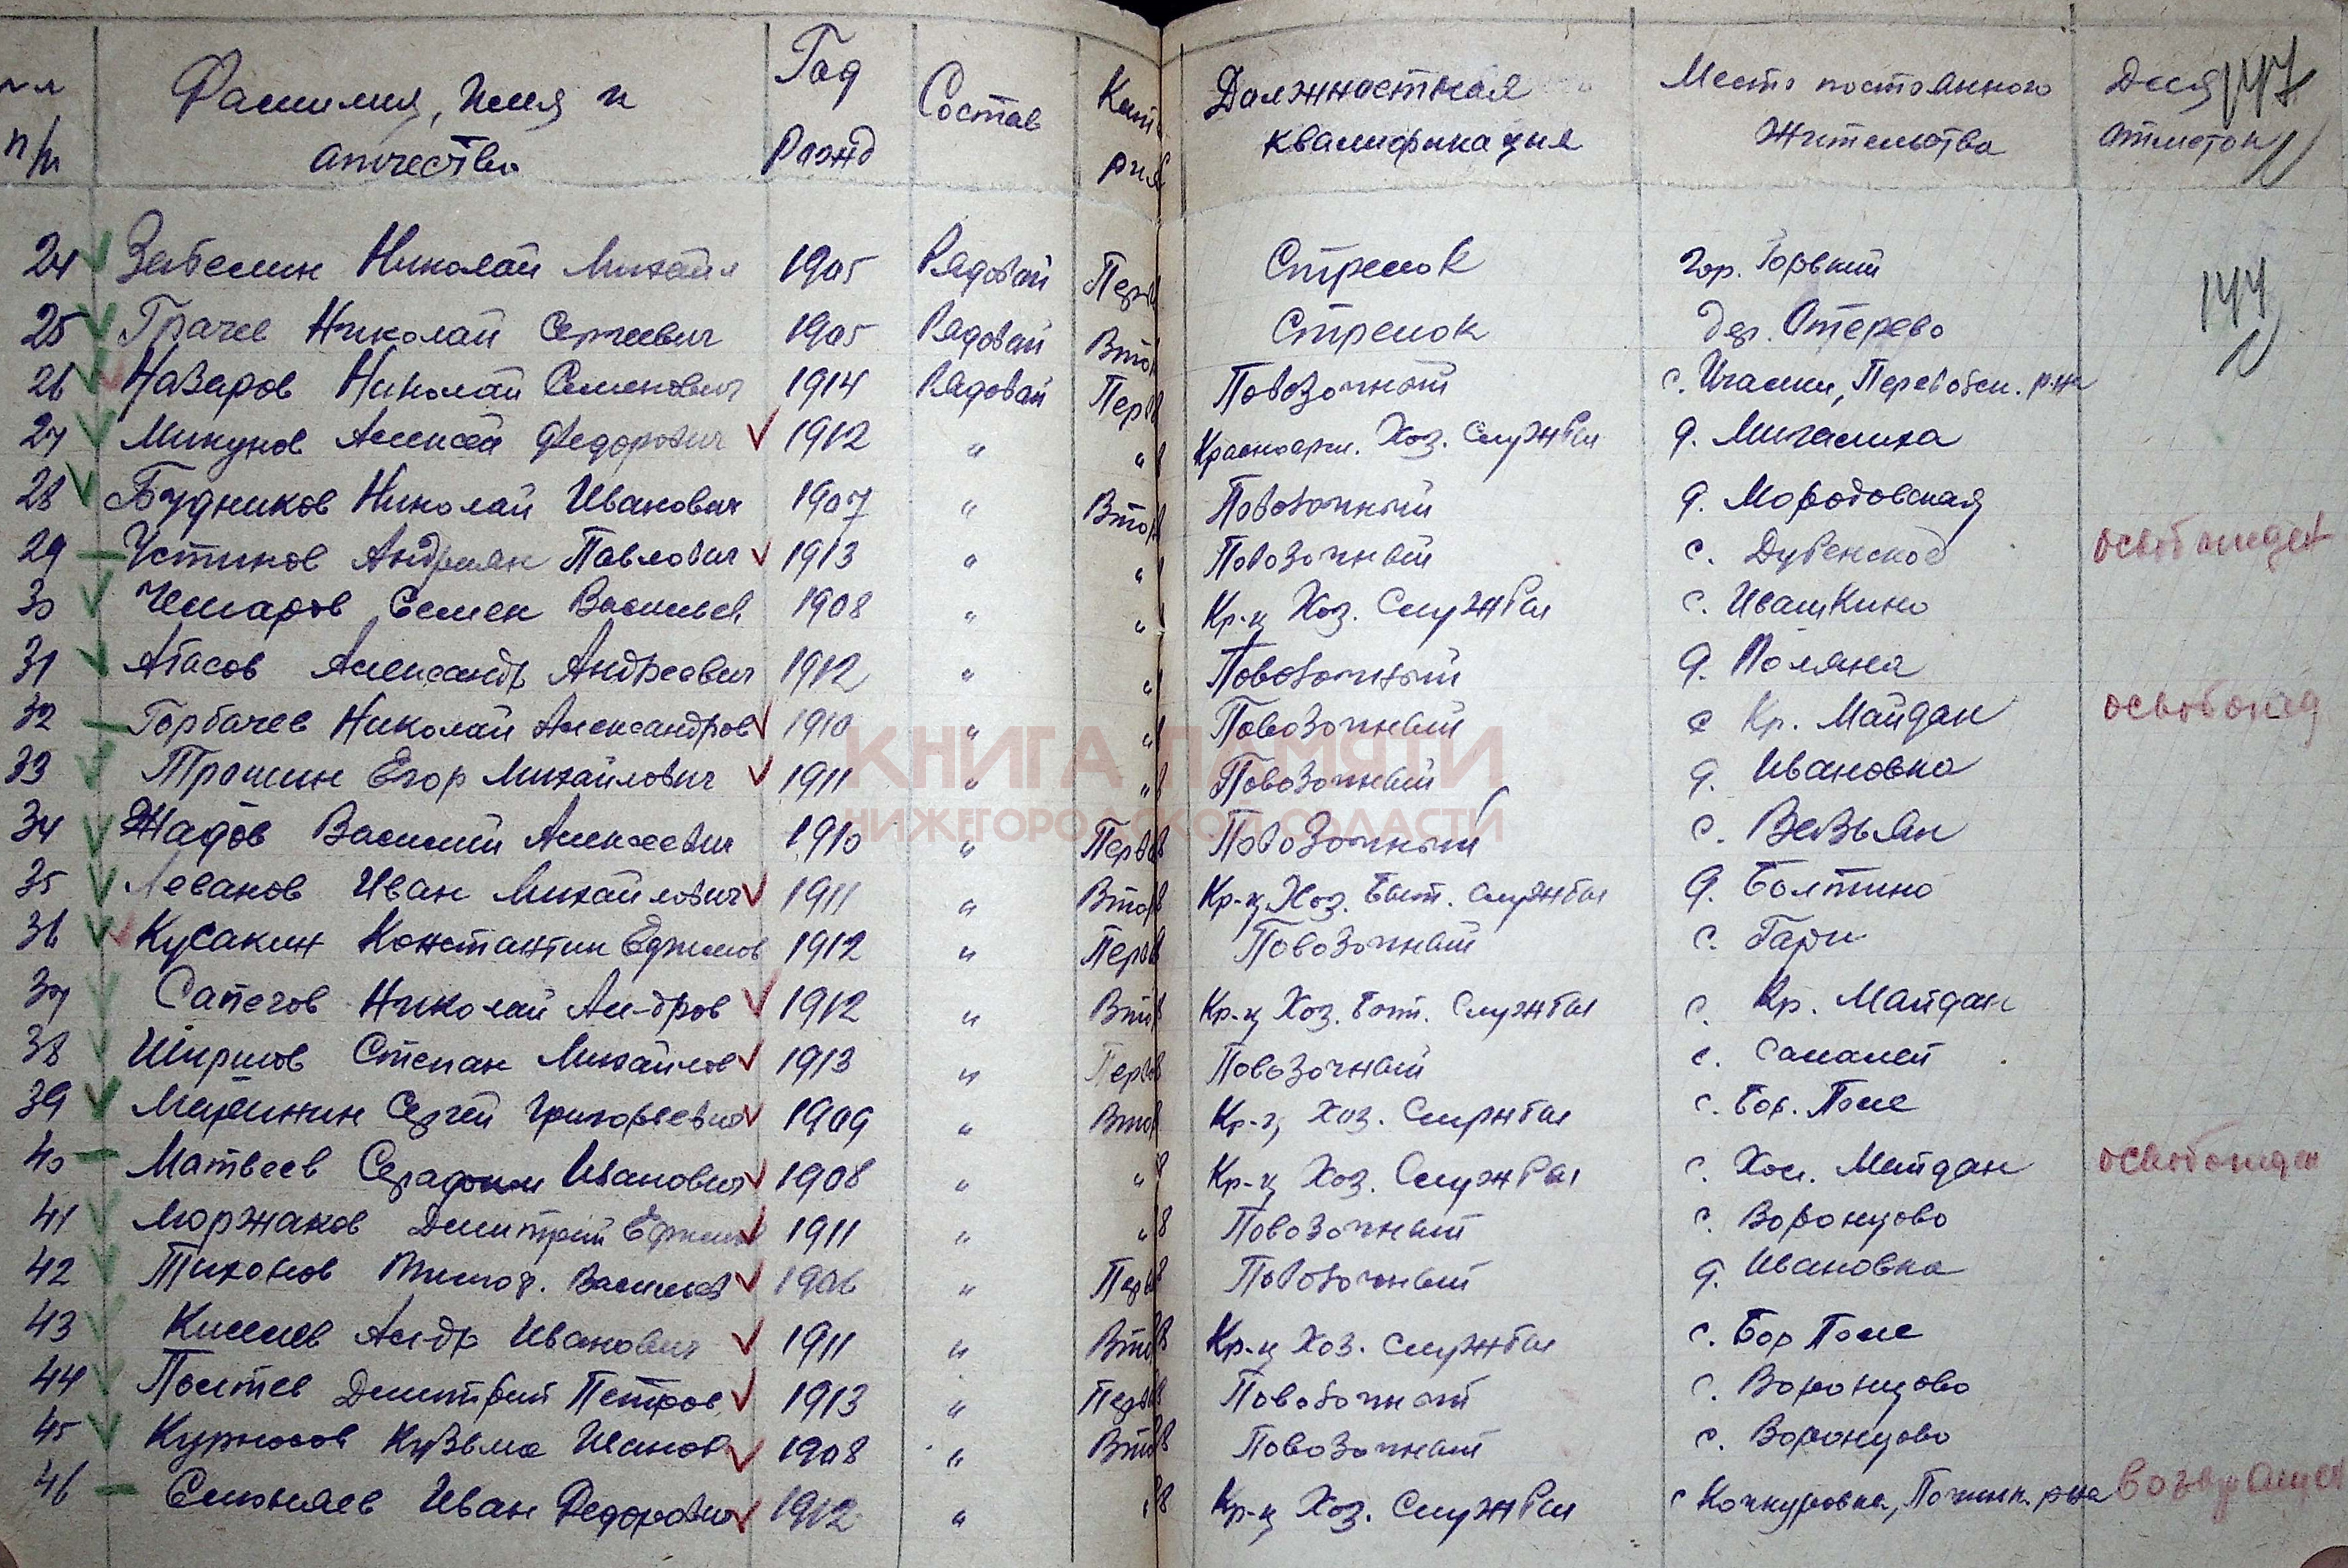 п/п Фамилия, Имя и отчество Год Рожд Состав Кат Должностная квалификация Место постоянного Жительства Для отметок 147
24 Забелин Николай Михайл 1905 Рядовой Перв Стрелок гор. Горький 144
25 Грачев Николай Сергеевич 1905 Рядовой Втор Стрелок дер. Отерево
26 Назаров Николай Семенович 1914 Рядовой Перв Повозочный с. Ичалки, Перевозск. р-на
27 Микунов Алексей Федорович 1912 " " Красноарм. Хоз. Службы д. Мигалиха
28 Будников Николай Иванович 1907 " Втор Повозочный д.
29 Устинов Андриян Павлович 1913 " " Повозочный с. Дубенское освобожден
30 Чемаров Семен Васильев 1908 " " Кр-ц Хоз. Службы с. Ивашкино
31 Агасов Александр Андреевич 1912 " " Повозочный д. Поляна
32 Горбачев Николай Александров 1910 " " Повозочный с Кр. Майдан освобожд
33 Трошин Егор Михайлович 1911 " " Повозочный д. Ивановка
КНИГА ПАМЯТИ
НИЖЕГОРОДСКОЙ ОБЛАСТИ
34 Жадов Василий Алексеевич 1910 " Перв Повозочный с. Вазьян
35 Леванов Иван Михайлович 1911 " Втор Кр-ц Хоз. Быт. Службы д. Болтино
36 Кусакин Константин Ефимов 1912 " Перв Повозочный с. Гари
37 Сапегов Николай Ал-дров 1912 " Втор Кр-ц Хоз. Быт. Службы с. Кр. Майдан
38 Ширшов Степан Михайлов 1913 " Перв Повозочный с. Саналей
39 Сергей Григорьевич 1909 " Втор Кр-ц Хоз. Службы с. Бор. Поле
40 Матвеев Серафим Иванович 1908 " " Кр-ц Хоз. Службы с. Хол. Майдан освобожден
41 Моржаков Дмитрий Ефимов 1911 " " Повозочный с. Воронцово
42 Тихонов Тимоф. Васильев 1906 " Перв Повозочный д. Ивановка
43 Киселев Ал-др Иванович 1911 " Втор Кр-ц Хоз. Службы с. Бор Поле
44 Дмитрий Петров 1913 " Перв Повозочный с. Воронцово
45 Курносов Кузьма Иванов 1908 " Втор Повозочный с. Воронцово
46 Иван Федорович 1912 " " Кр-ц Хоз. Службы с Кочкуровка, Починк. р-на возвращен